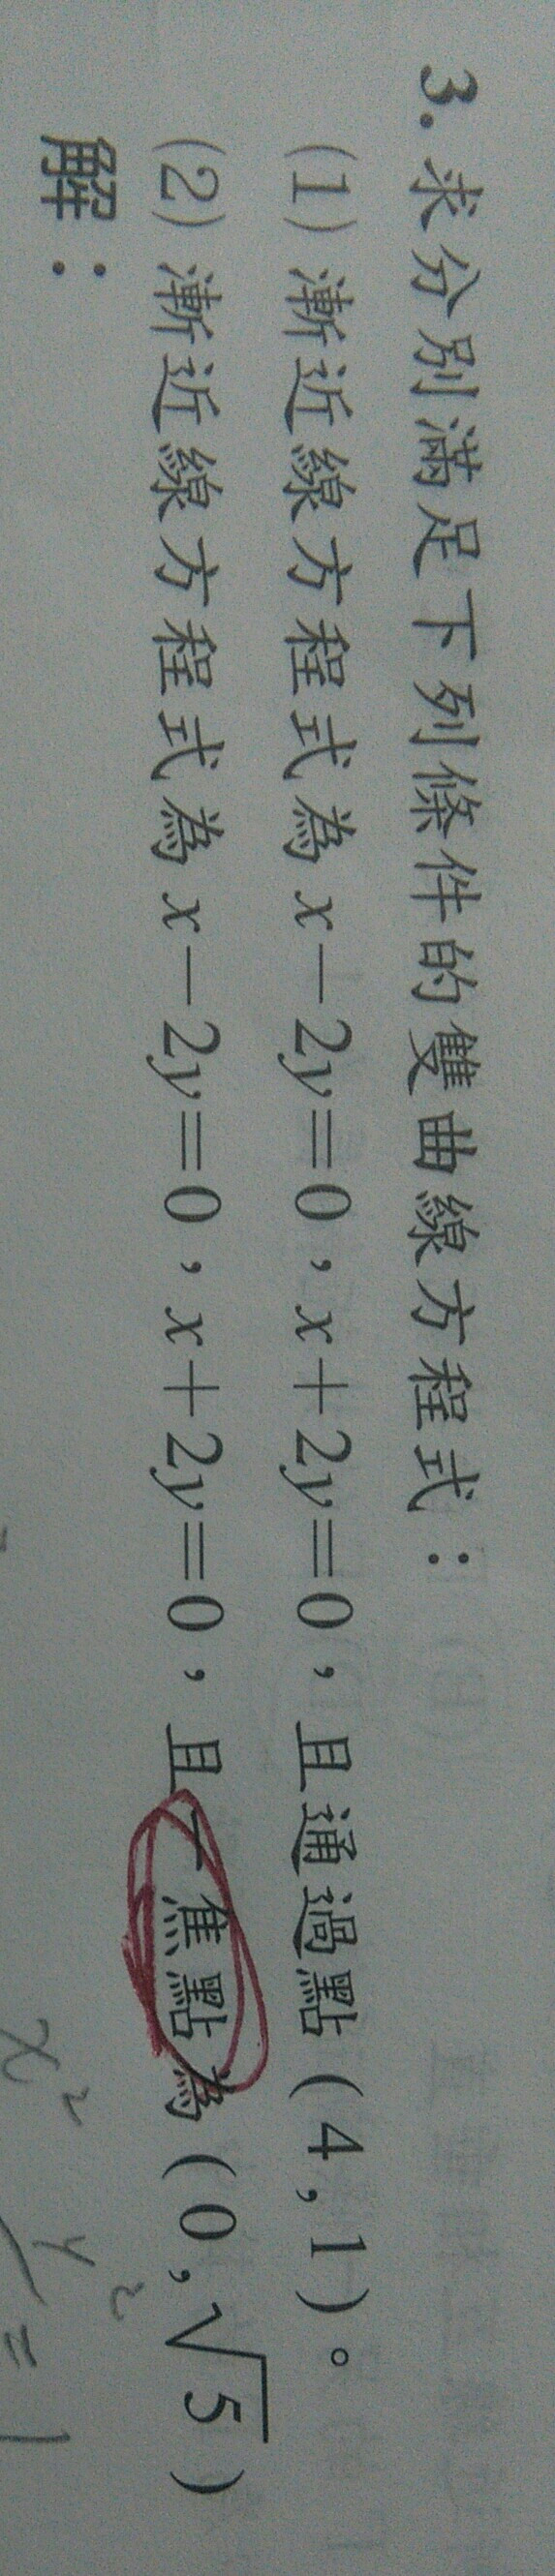 3. 求分別滿足下列條件的雙曲線方程式：
(1) 漸近線方程式為 x－2y＝0，x＋2y＝0，且通過點 (4,1)。
(2) 漸近線方程式為 x－2y＝0，x＋2y＝0，且一焦點為 (0,√5)
解：
x² y² = 1